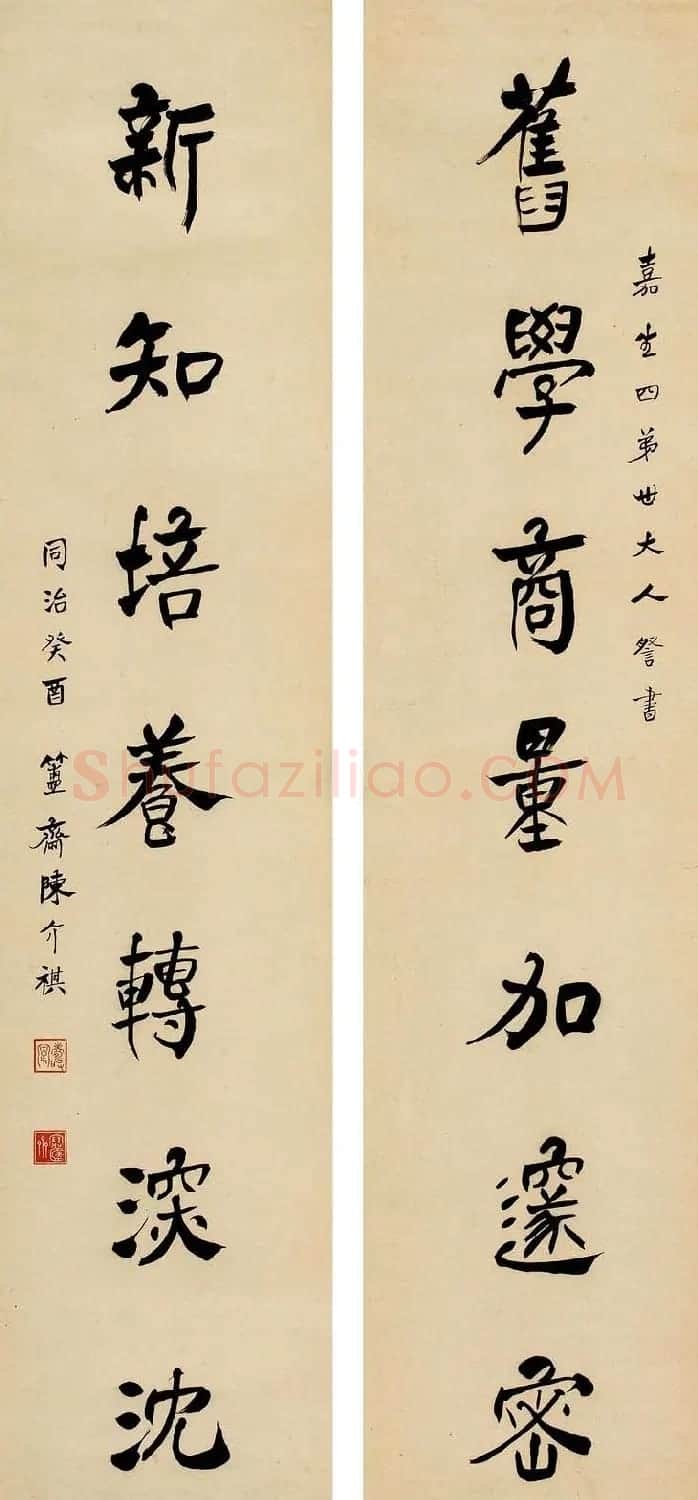 嘉生四弟世大人詧書
舊學商量加邃密
新知培養轉深沈
同治癸酉 簠齋陳介祺
Shufaziliao.COM